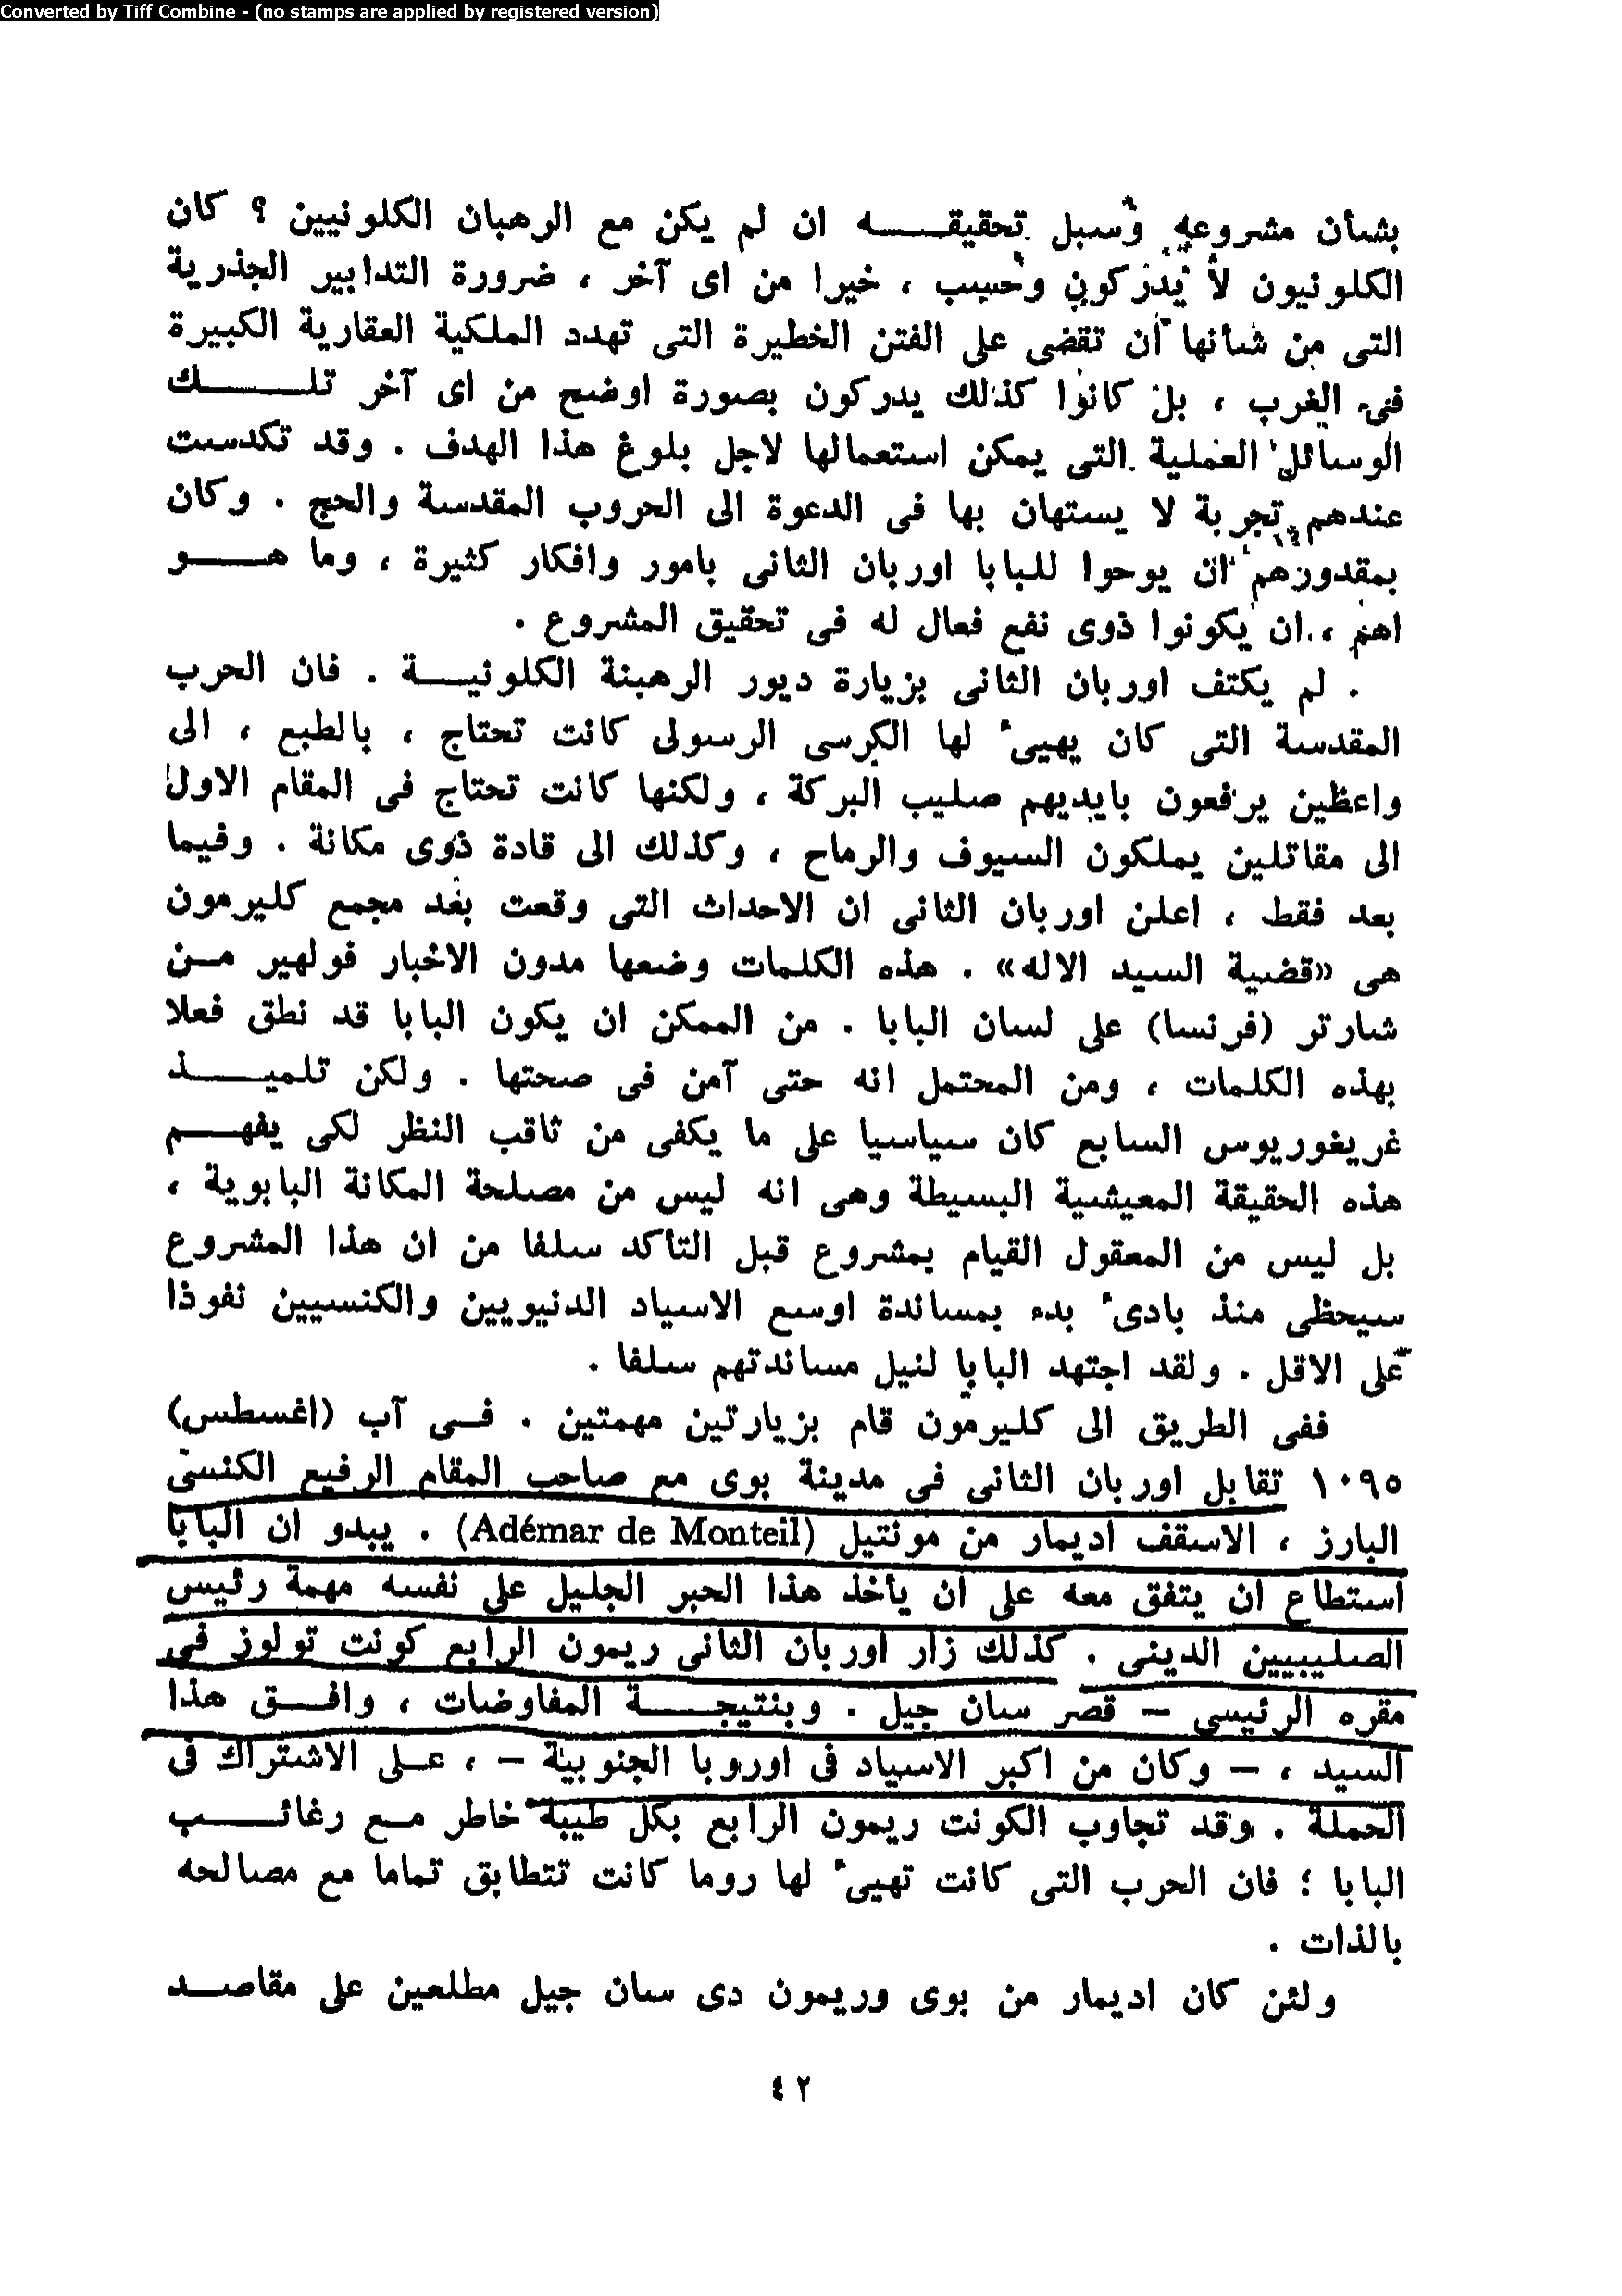 Converted by Tiff Combine - (no stamps are applied by registered version)
بشأن مشروعه وسبل تحقيقـــه ان لم يكن مع الرهبان الكلونيين ؟ كان
الكلونيون لا يدركون وحسب ، خيرا من اى آخر ، ضرورة التدابير الجذرية
التى من شأنها ان تقضى على الفتن الخطيرة التى تهدد الملكية العقارية الكبيرة
فى الغرب ، بل كانوا كذلك يدركون بصورة اوضح من اى آخر تلـــــك
الوسائل العملية التى يمكن استعمالها لاجل بلوغ هذا الهدف . وقد تكدست
عندهم تجربة لا يستهان بها فى الدعوة الى الحروب المقدسة والحج . وكان
بمقدورهم ان يوحوا للبابا اوربان الثانى بامور وافكار كثيرة ، وما هـــو
اهم ، ان يكونوا ذوى نفع فعال له فى تحقيق المشروع .
. لم يكتف اوربان الثانى بزيارة ديور الرهبنة الكلونيـــة . فان الحرب
المقدسة التى كان يهيىء لها الكرسى الرسولى كانت تحتاج ، بالطبع ، الى
واعظين يرفعون بايديهم صليب البركة ، ولكنها كانت تحتاج فى المقام الاول
الى مقاتلين يملكون السيوف والرماح ، وكذلك الى قادة ذوى مكانة . وفيما
بعد فقط ، اعلن اوربان الثانى ان الاحداث التى وقعت بعد مجمع كليرمون
هى «قضية السيد الاله» . هذه الكلمات وضعها مدون الاخبار فولهير مـن
شارتر (فرنسا) على لسان البابا . من الممكن ان يكون البابا قد نطق فعلا
بهذه الكلمات ، ومن المحتمل انه حتى آمن فى صحتها . ولكن تلميـــذ
غريغوريوس السابع كان سياسيا على ما يكفى من ثاقب النظر لكى يفهـــم
هذه الحقيقة المعيشية البسيطة وهى انه ليس من مصلحة المكانة البابوية ،
بل ليس من المعقول القيام بمشروع قبل التأكد سلفا من ان هذا المشروع
سيحظى منذ بادىء بدء بمساندة اوسع الاسياد الدنيويين والكنسيين نفوذا
على الاقل . ولقد اجتهد البابا لنيل مساندتهم سلفا .
ففى الطريق الى كليرمون قام بزيارتين مهمتين . فـى آب (اغسطس)
١٠٩٥ تقابل اوربان الثانى فى مدينة بوى مع صاحب المقام الرفيع الكنسى
البارز ، الاسقف اديمار من مونتيل (Adémar de Monteil) . يبدو ان البابا
استطاع ان يتفق معه على ان يأخذ هذا الحبر الجليل على نفسه مهمة رئيس
الصليبيين الدينى . كذلك زار اوربان الثانى ريمون الرابع كونت تولوز فى
مقره الرئيسى – قصر سان جيل . وبنتيجـــة المفاوضات ، وافـق هذا
السيد ، – وكان من اكبر الاسياد فى اوروبا الجنوبية – ، علـى الاشتراك فى
الحملة . وقد تجاوب الكونت ريمون الرابع بكل طيبة خاطر مـع رغائـــب
البابا ؛ فان الحرب التى كانت تهيىء لها روما كانت تتطابق تماما مع مصالحه
بالذات .
ولئن كان اديمار من بوى وريمون دى سان جيل مطلعين على مقاصـد
٤٢